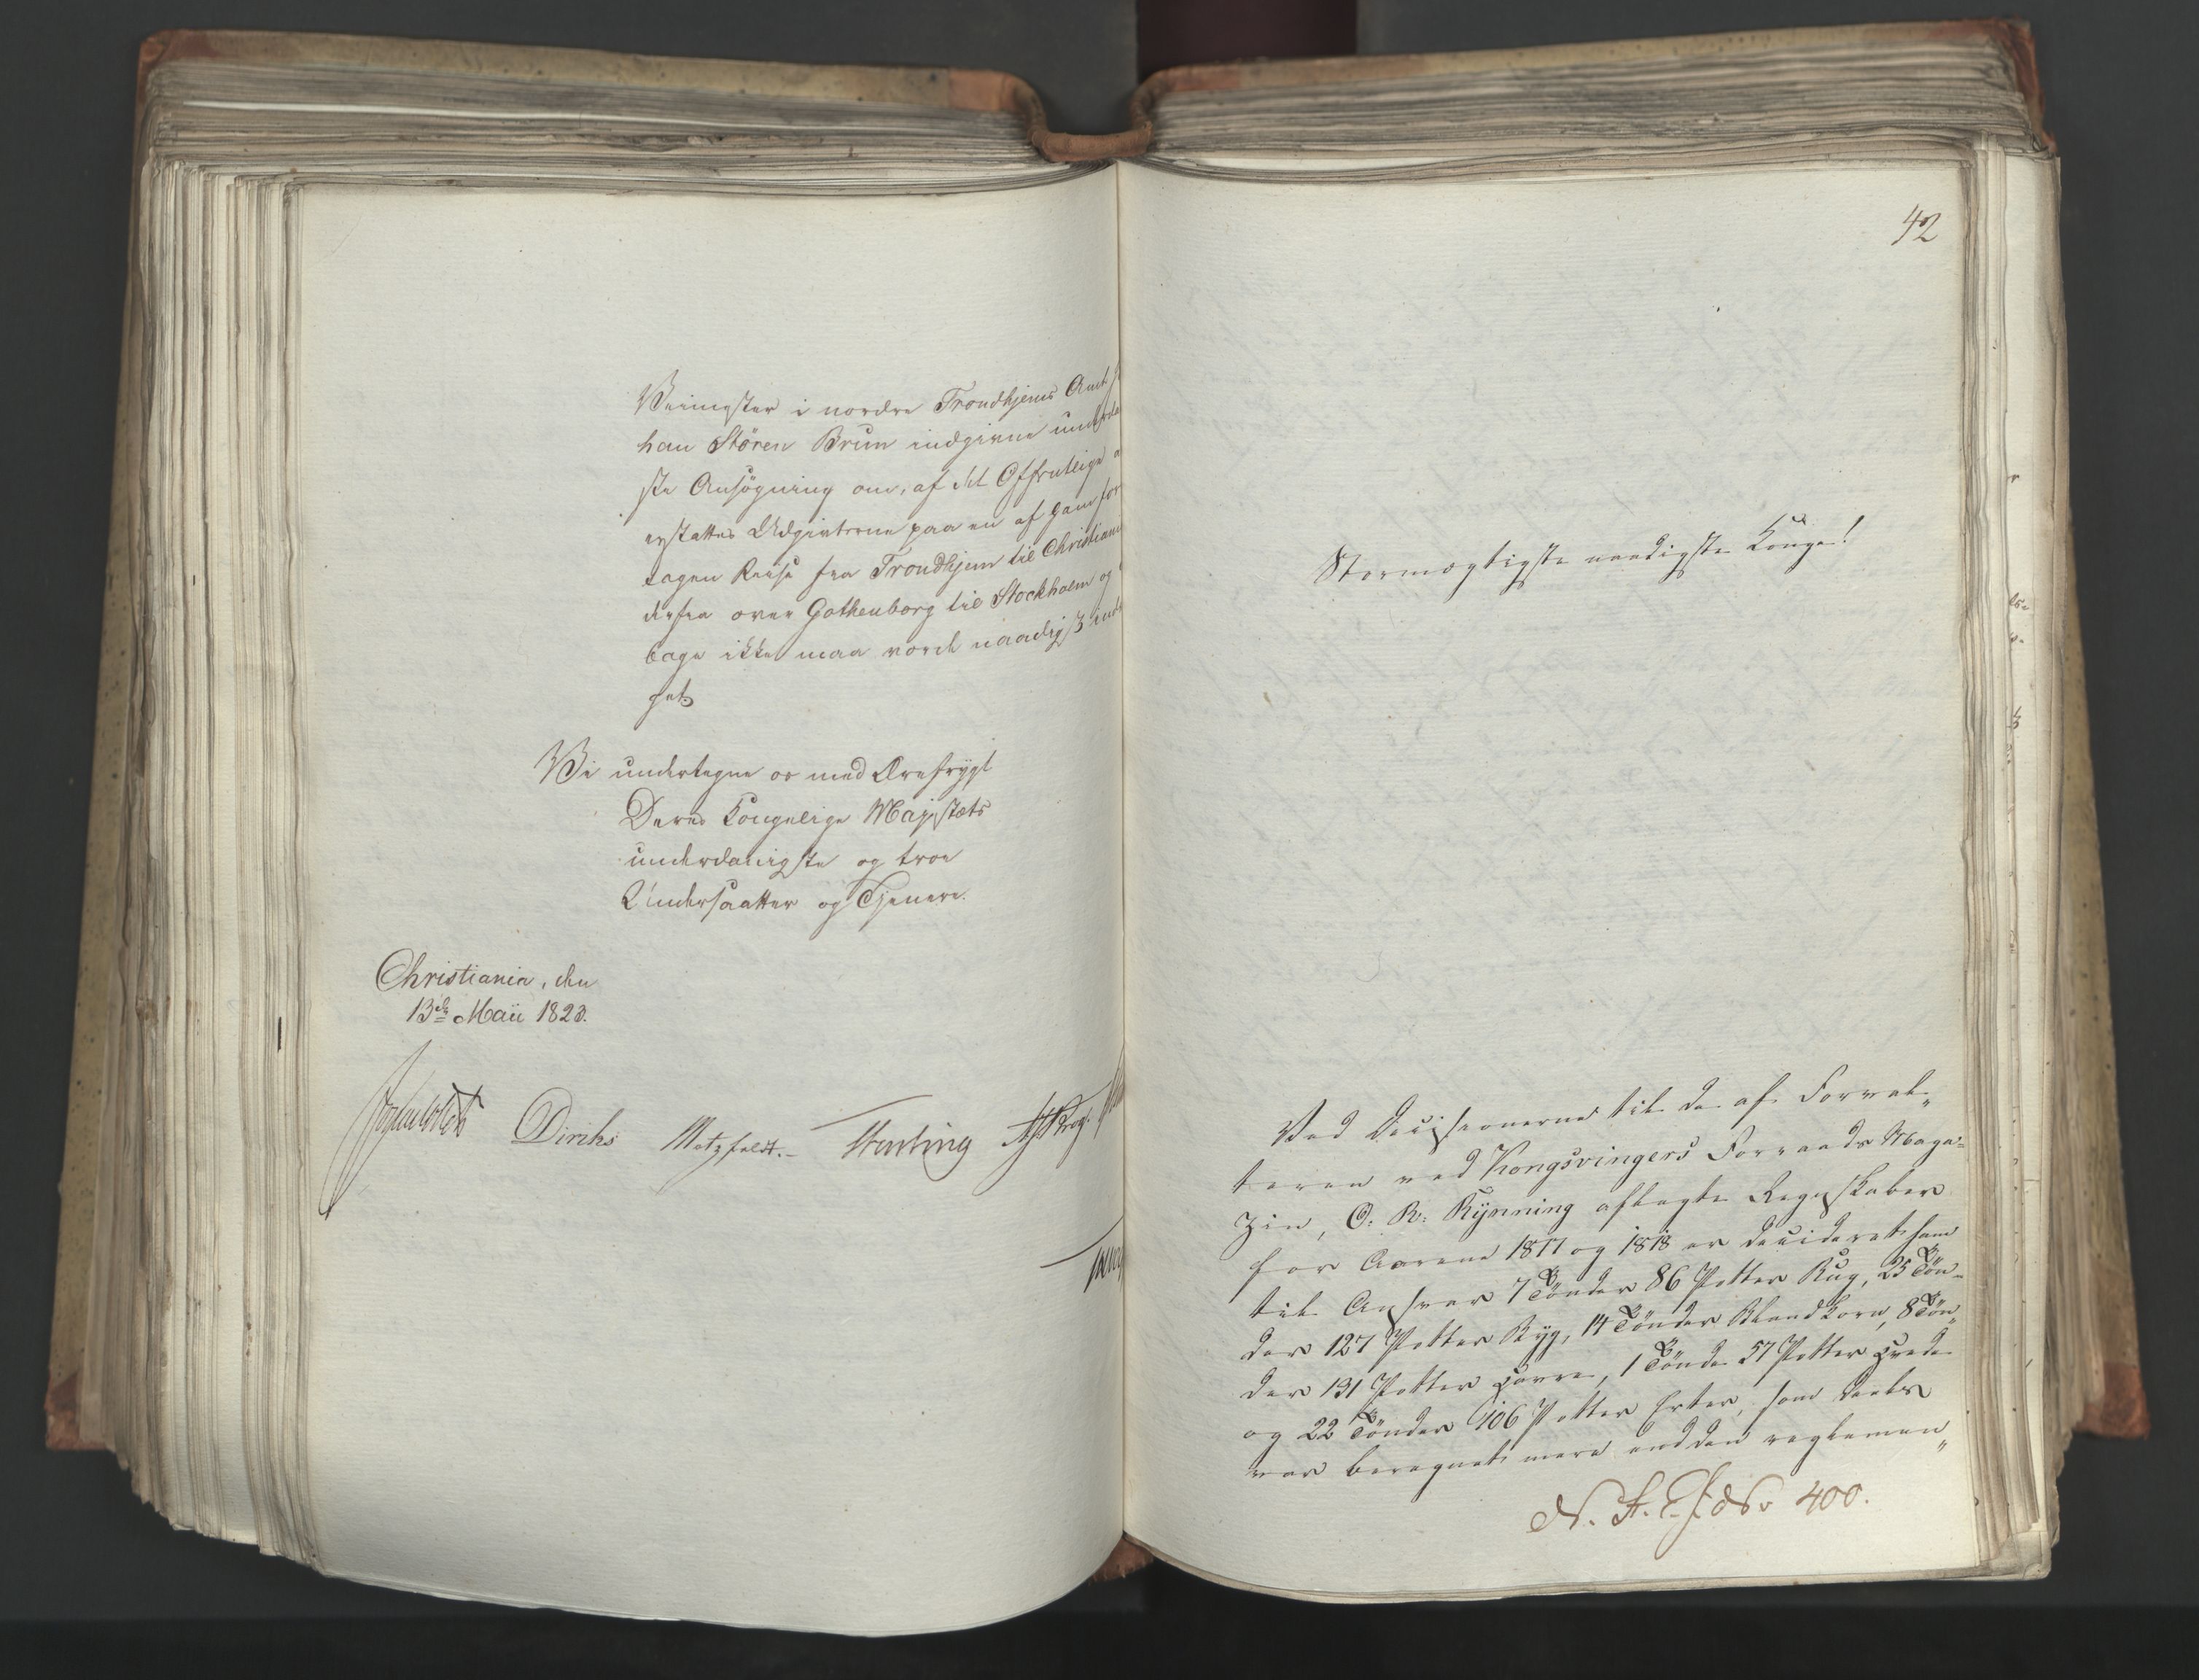 Veimester i nordre Trondhjems Amt
han Stören Brun indgivne underda
ste Ansögning om, af det Offentlige
erstattes Udgivterne paa en af ham for
tagen Reise fra Trondhjem til Christian
derfra over Gothenborg til Stockholm og
bage ikke maa vorde naadigst
get.
Vi undertegne os med Ærefrygt
Deres Kongelige Majestæts
underdanigste og troe
Undersaatter og Tjenere.
Christiania, den
13de Maii 1823.
Diriks Motzfeldt.
42
Stormægtigste naadigste Konge!
Ved Decisionerne til de af Forval„
teren ved Kongsvingers Forraads Maga=
zin, O. R. Rynning aflagte Regnskaber
for Aarene 1817 og 1818 er decideret ham
til Ansvar 7 Tönder 86 Potter Rug, 25 Tön=
der 127 Potter Byg, 14 Tönder Blandkorn, 8 Tön„
der 131 Potter Havre, 1 Tönde 57 Potter Hvede
og 22 Tönder 106 Potter Erter, som deels
var beregnet mere end den reglemen„
400.